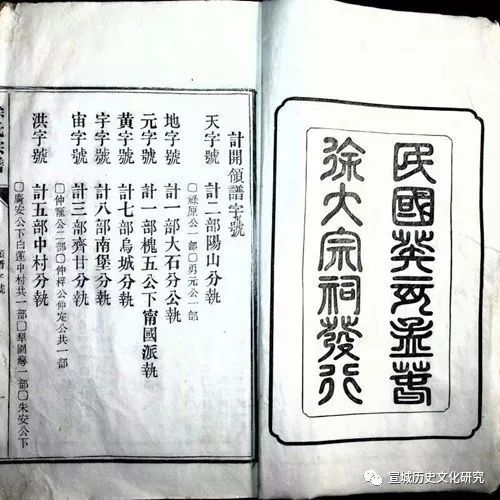 民國癸亥孟春
徐大宗祠發行
計開領譜字號
天字號 計二部陽山分執
〇祿原公一部〇勇元公一部
地字號 計一部大石分公執
元字號 計一部槐五公下甯國派執
黃字號 計七部烏城分執
宇字號 計八部南堡分執
宙字號 計三部齊甘分執
〇仲寵公二部〇仲祥公仲定公共一部
洪字號 計五部中村分執
〇廣安公下白蓮中村共一部〇犁園灣一部〇朱安公下
宣城历史文化研究